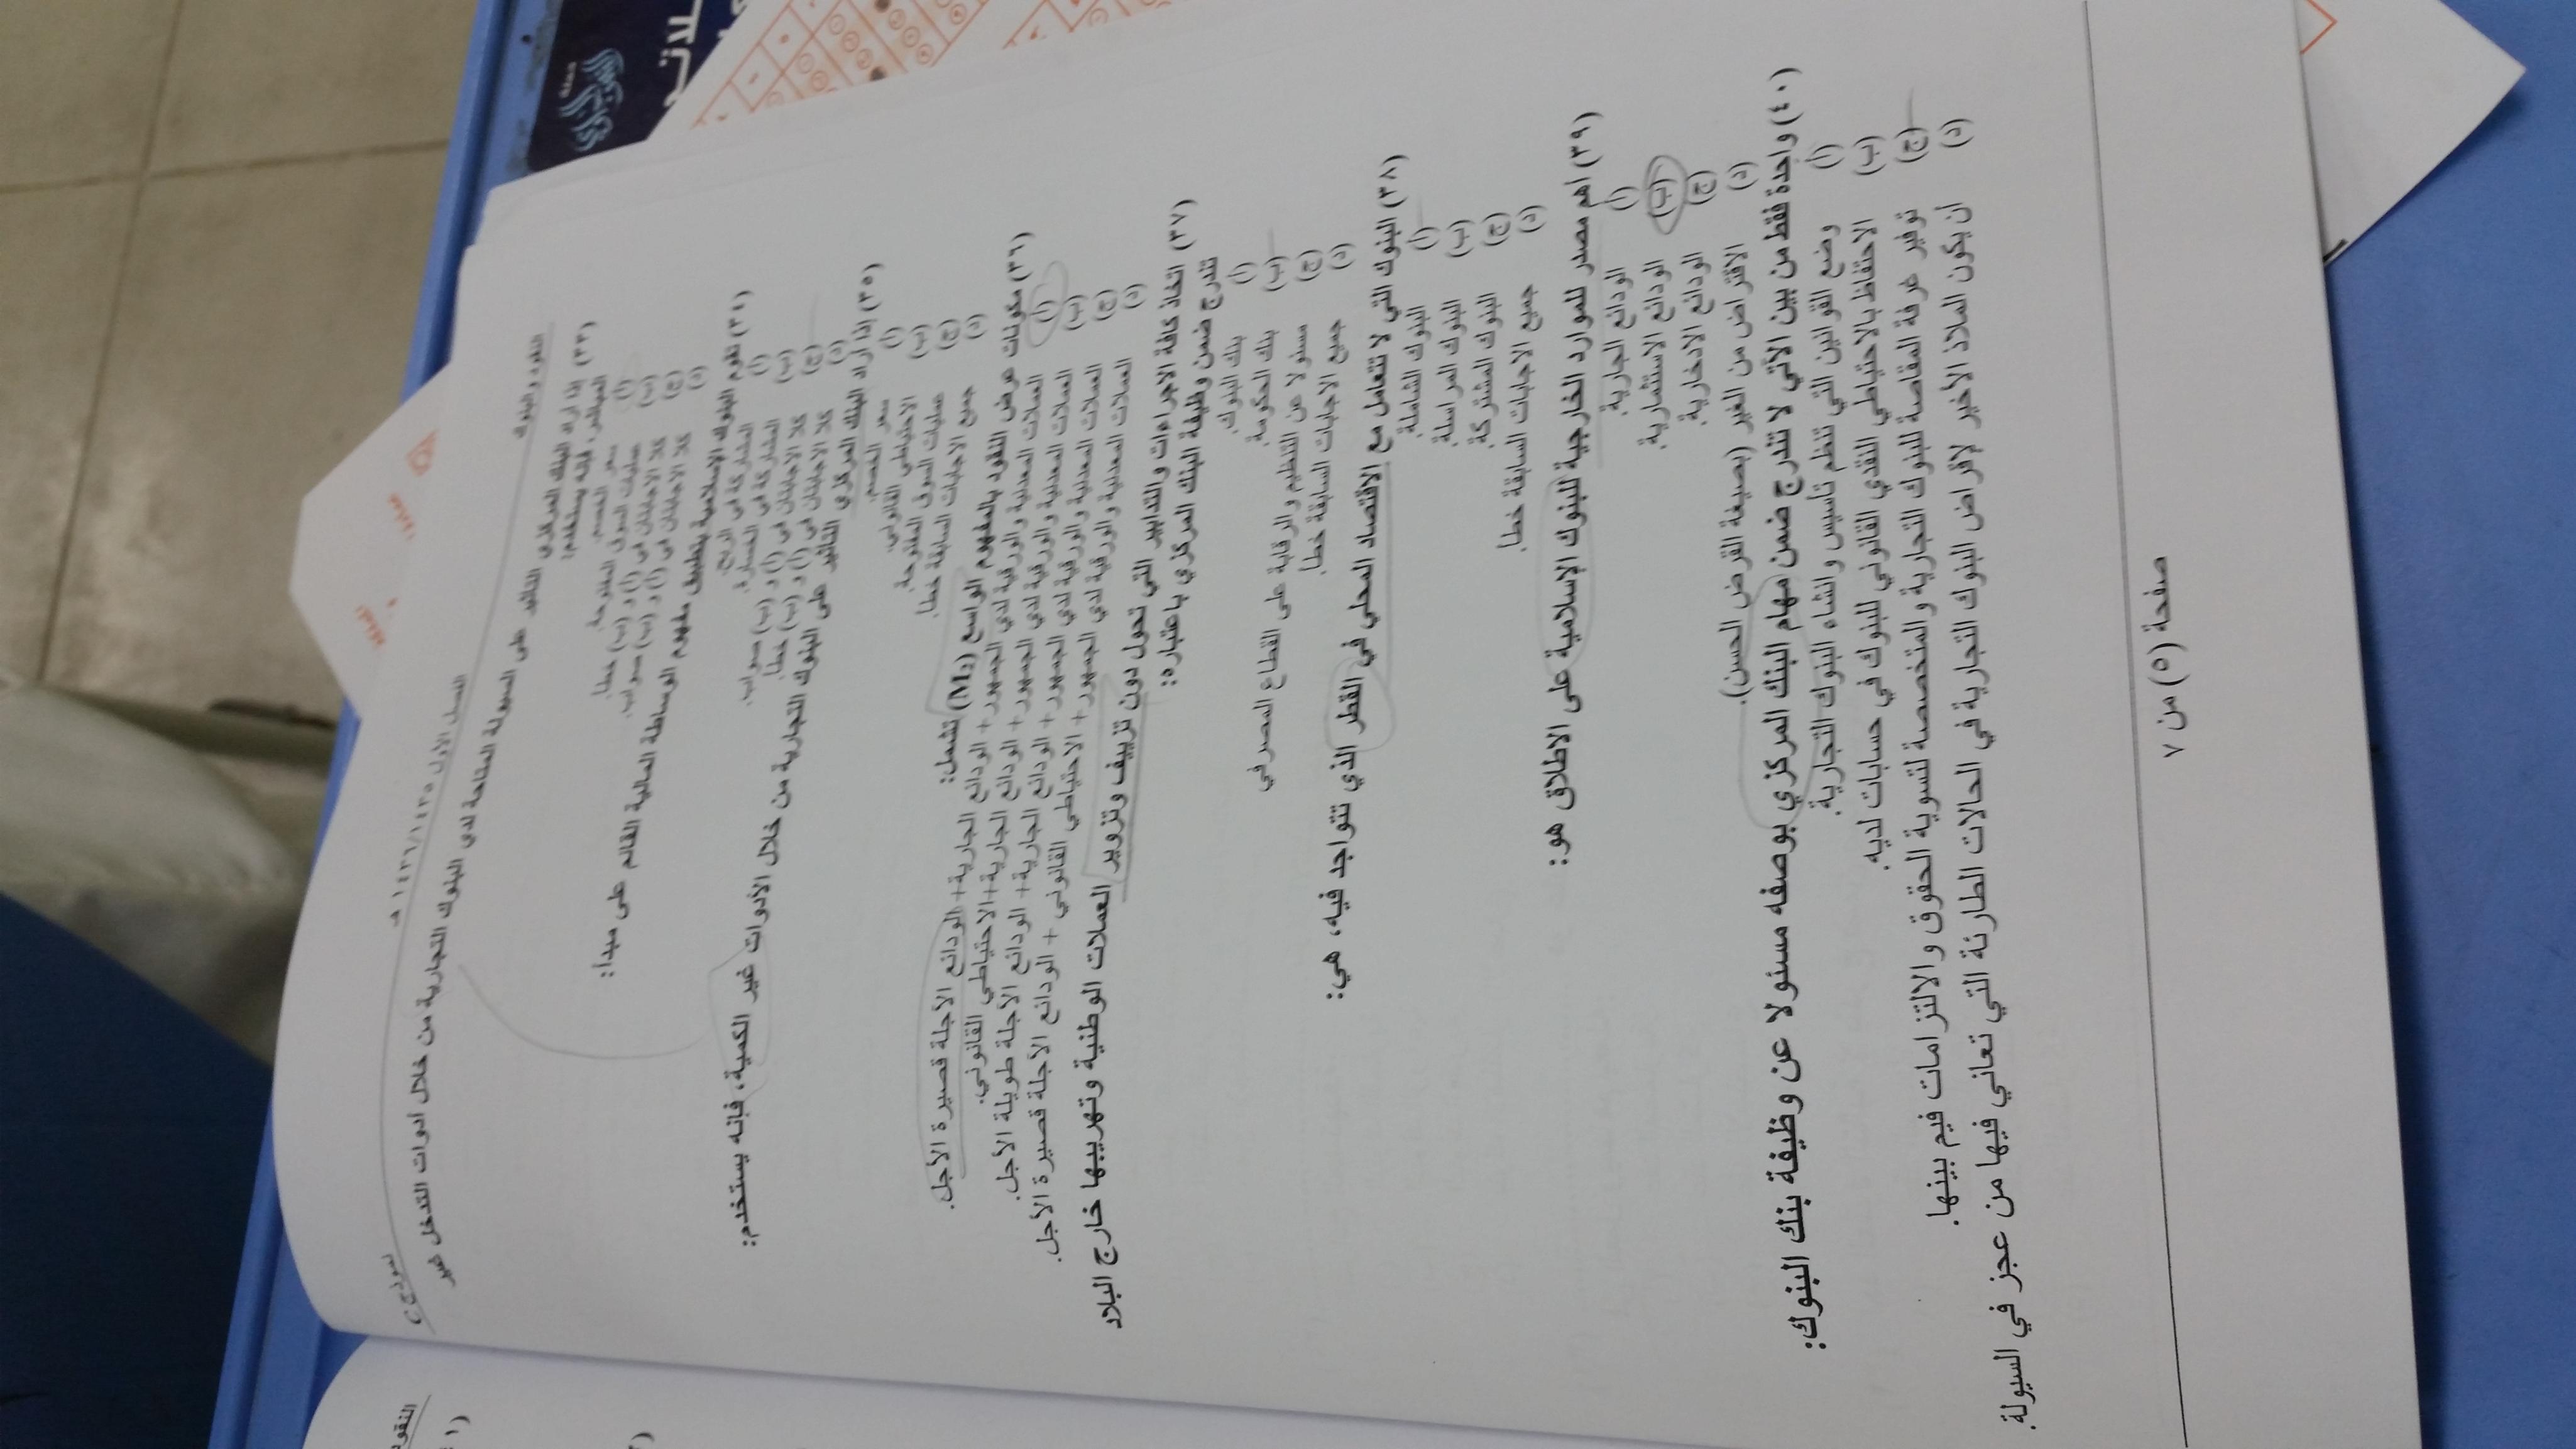 النقود والبنوك
الفصل الأول ١٤٣٦/١٤٣٥ هـ
نموذج C
(٣٣) إذا أراد البنك المركزي التأثير على السيولة المتاحة لدى البنوك التجارية من خلال أدوات التدخل غير
المباشر، فإنه يستخدم:
(أ) سعر الخصم.
(ب) عمليات السوق المفتوحة.
(ج) كلا الاجابتان في (أ) و (ب) خطأ.
(د) كلا الاجابتان في (أ) و (ب) صواب.
(٣٤) تقوم البنوك الاسلامية بتطبيق مفهوم الوساطة المالية القائم على مبدأ:
(أ) المشاركة في الربح.
(ب) المشاركة في الخسارة.
(ج) كلا الاجابتان في (أ) و (ب) صواب.
(د) كلا الاجابتان في (أ) و (ب) خطأ.
(٣٥) إذا أراد البنك المركزي التأثير على البنوك التجارية من خلال الأدوات غير الكمية، فإنه يستخدم:
(أ) سعر الخصم.
(ب) الاحتياطي القانوني.
(ج) عمليات السوق المفتوحة.
(د) جميع الاجابات السابقة خطأ.
(٣٦) مكونات عرض النقود بالمفهوم الواسع (M٤) تشمل:
(أ) العملات المعدنية والورقية لدى الجمهور + الودائع الجارية + الودائع الآجلة قصيرة الأجل.
(ب) العملات المعدنية والورقية لدى الجمهور + الودائع الجارية + الاحتياطي القانوني.
(ج) العملات المعدنية والورقية لدى الجمهور + الودائع الجارية + الودائع الآجلة طويلة الأجل.
(د) العملات المعدنية والورقية لدى الجمهور + الاحتياطي القانوني + الودائع الآجلة قصيرة الأجل.
(٣٧) اتخاذ كافة الاجراءات والتدابير التي تحول دون تزييف وتزوير العملات الوطنية وتهريبها خارج البلاد
تندرج ضمن وظيفة البنك المركزي باعتباره:
(أ) بنك البنوك.
(ب) بنك الحكومة
(ج) مسئولا عن التنظيم والرقابة على القطاع المصرفي
(د) جميع الاجابات السابقة خطأ.
(٣٨) البنوك التي لا تتعامل مع الاقتصاد المحلي في القطر الذي تتواجد فيه، هي:
(أ) البنوك الشاملة
(ب) البنوك المراسلة
(ج) البنوك المشتركة
(د) جميع الاجابات السابقة خطأ.
(٣٩) أهم مصدر للموارد الخارجية للبنوك الإسلامية على الاطلاق هو:
(أ) الودائع الجارية.
(ب) الودائع الاستثمارية.
(ج) الودائع الادخارية.
(د) الاقتراض من الغير (بصيغة القرض الحسن).
(٤٠) واحدة فقط من بين الآتي لا تندرج ضمن مهام البنك المركزي بوصفه مسئولا عن وظيفة بنك البنوك:
(أ) وضع القوانين التي تنظم تأسيس وانشاء البنوك التجارية.
(ب) الاحتفاظ بالاحتياطي النقدي القانوني للبنوك في حسابات لديه.
(ج) توفير غرفة المقاصة للبنوك التجارية والمتخصصة لتسوية الحقوق والالتزامات فيم بينها.
(د) ان يكون الملاذ الأخير لإقراض البنوك التجارية في الحالات الطارئة التي تعاني فيها من عجز في السيولة.
صفحة (٥) من ٧